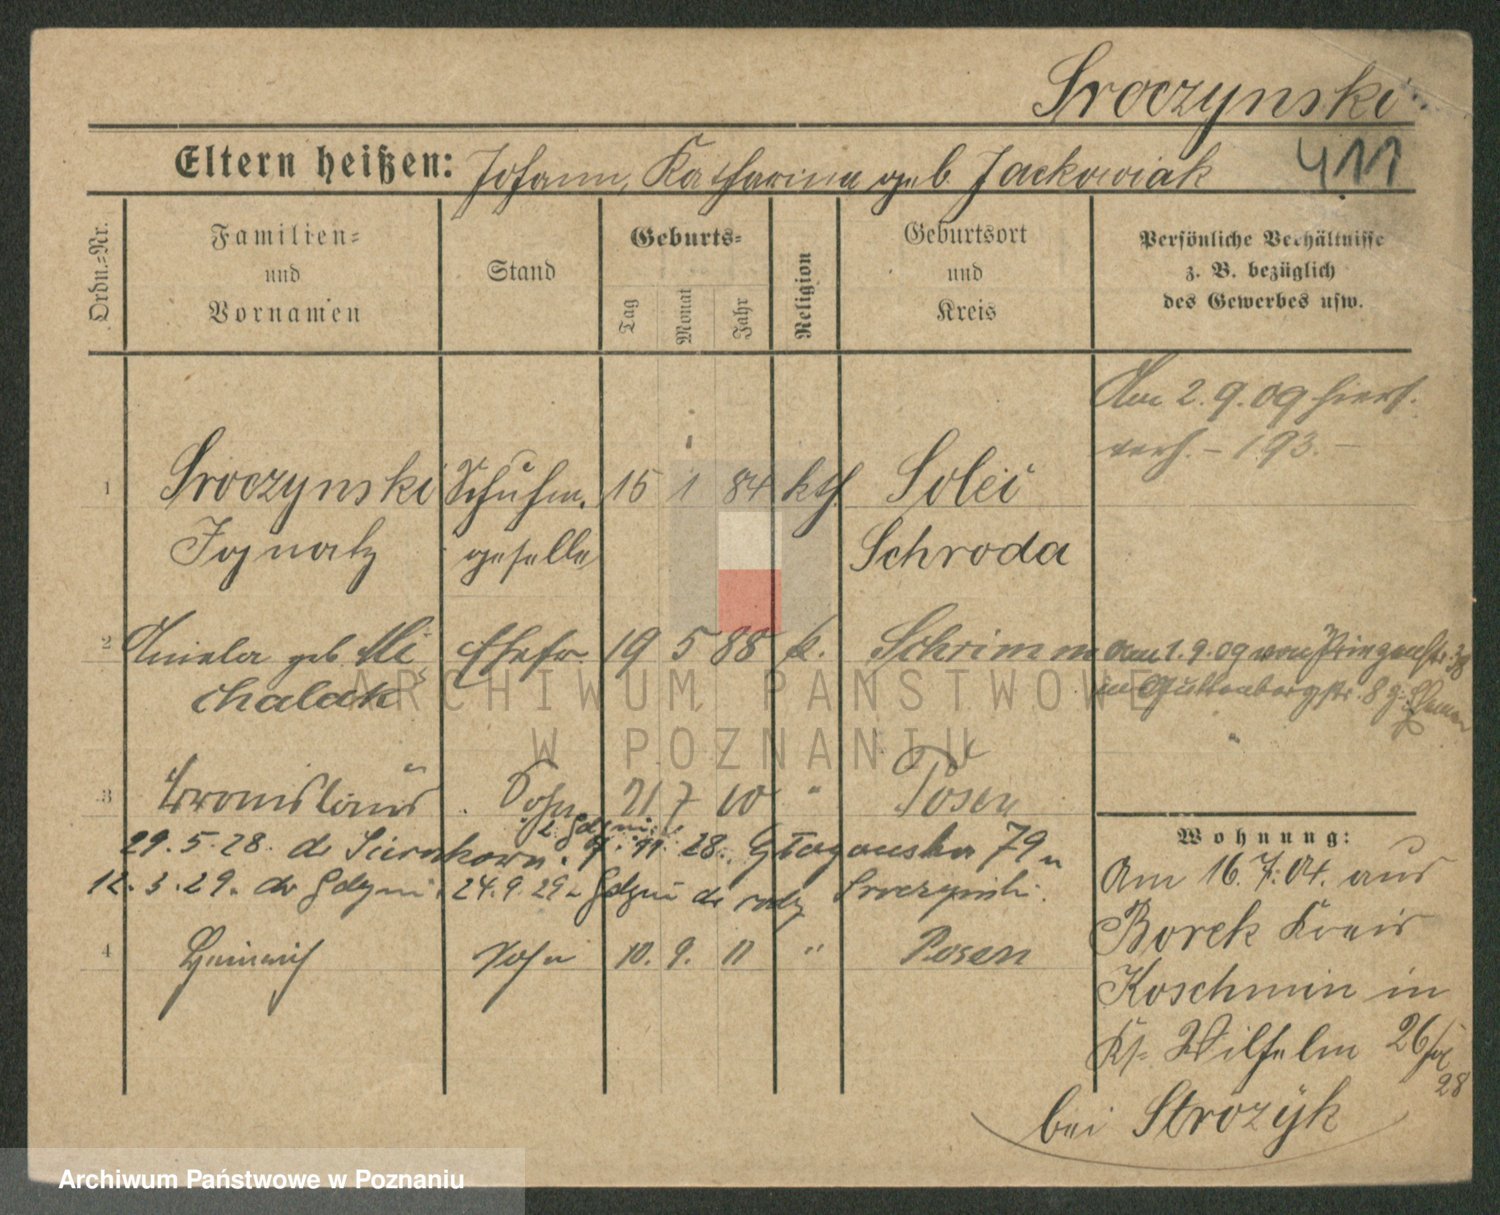 Sroczynski
Eltern heißen: Johann, Katharina geb Jackowiak
411
Ordn.=Nr.
Familien=
und
Vornamen
Stand
Geburts=
Tag
Monat
Jahr
Religion
Geburtsort
und
Kreis
Persönliche Verhältnisse
z. B. bezüglich
des Gewerbes usw.
Am 2.9.09 hierf.
verh. – 193. –
1 Sroczynski Schuhm. 15 1 84 kth. Solec
Ignatz geselle Schroda
2 Aniela geb Mi- Ehefr. 19 5 88 k. Schrimm
chalak
am 1.9.09 von
in Guttenbergstr. 8
3 Bronislaus Sohn 21 7 10 " Posen
29.5.28. do Sierakowa. 28. 79
12.3.29. do Gdyni. 24.9.29 Gdyni do Sroczyński.
4 Heinrich Sohn 10. 9. 11 " Posen
Wohnung:
Am 16.7.04. aus
Borek Kreis
Koschmin in
Wilhelm 26
28
bei Strozyk
ARCHIWUM PAŃSTWOWE
W POZNANIU
Archiwum Państwowe w Poznaniu